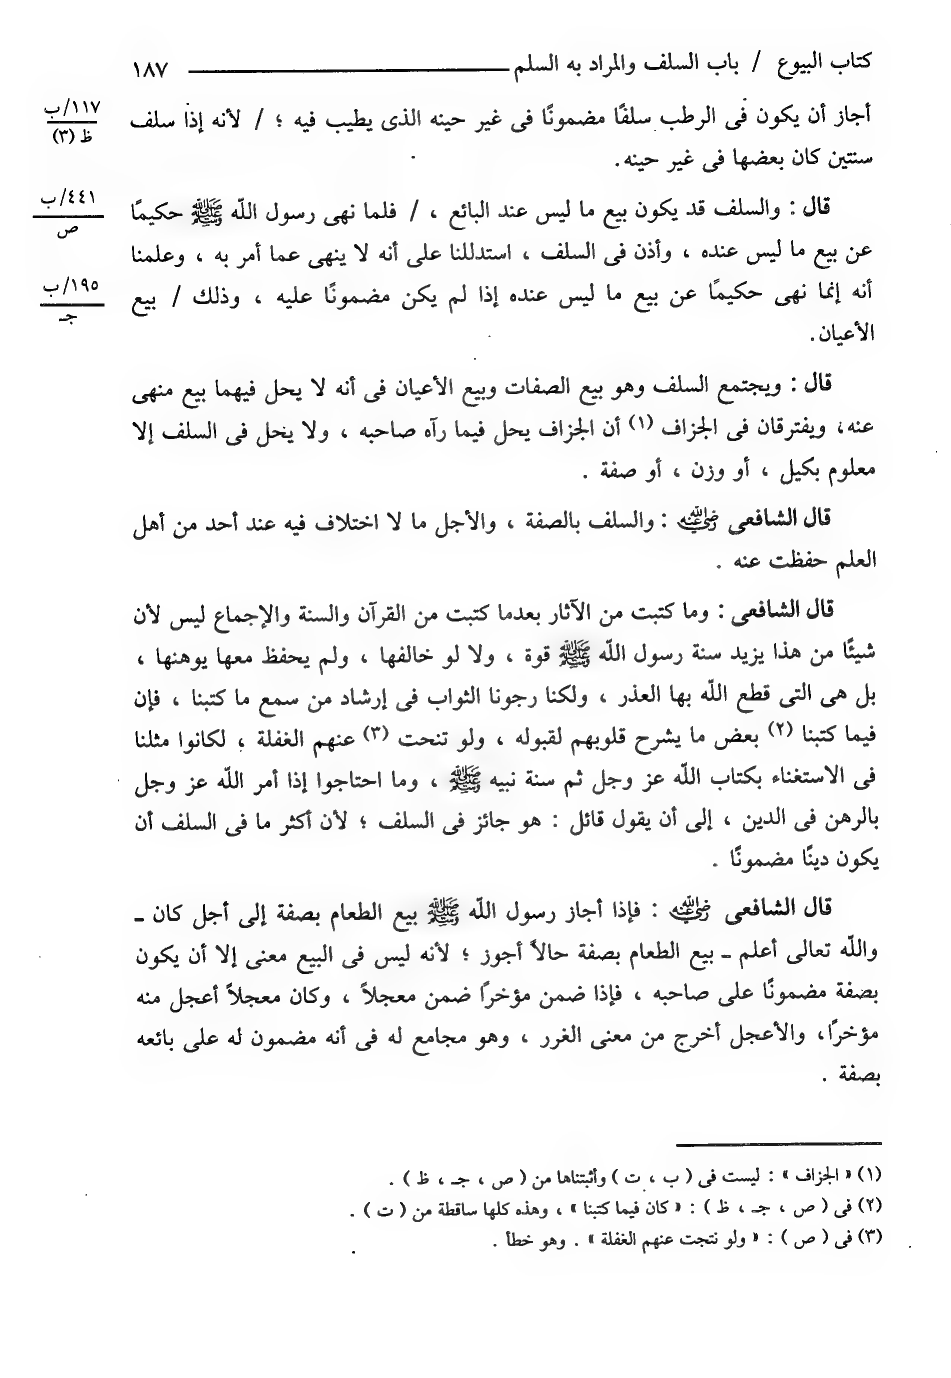 كتاب البيوع / باب السلف والمراد به السلم ١٨٧
أجاز أن يكون فى الرطب سلفًا مضمونًا فى غير حينه الذى يطيب فيه ؛ / لأنه إذا سلف
١١٧/ب
ظ (٣)
سنتين كان بعضها فى غير حينه.
قال : والسلف قد يكون بيع ما ليس عند البائع ، / فلما نهى رسول اللّه ﷺ حكيمًا
٤٤١/ب
ص
عن بيع ما ليس عنده ، وأذن فى السلف ، استدللنا على أنه لا ينهى عما أمر به ، وعلمنا
أنه إنما نهى حكيمًا عن بيع ما ليس عنده إذا لم يكن مضمونًا عليه ، وذلك / بيع
١٩٥/ب
جـ
الأعيان.
قال : ويجتمع السلف وهو بيع الصفات وبيع الأعيان فى أنه لا يحل فيهما بيع منهى
عنه، ويفترقان فى الجزاف (١) أن الجزاف يحل فيما رآه صاحبه ، ولا يحل فى السلف إلا
معلوم بكيل ، أو وزن ، أو صفة .
قال الشافعى رضي الله عنه : والسلف بالصفة ، والأجل ما لا اختلاف فيه عند أحد من أهل
العلم حفظت عنه .
قال الشافعى : وما كتبت من الآثار بعدما كتبت من القرآن والسنة والإجماع ليس لأن
شيئًا من هذا يزيد سنة رسول اللّه ﷺ قوة ، ولا لو خالفها ، ولم يحفظ معها يوهنها ،
بل هى التى قطع اللّه بها العذر ، ولكنا رجونا الثواب فى إرشاد من سمع ما كتبنا ، فإن
فيما كتبنا (٢) بعض ما يشرح قلوبهم لقبوله ، ولو تنحت (٣) عنهم الغفلة ؛ لكانوا مثلنا
فى الاستغناء بكتاب اللّه عز وجل ثم سنة نبيه ﷺ ، وما احتاجوا إذا أمر اللّه عز وجل
بالرهن فى الدين ، إلى أن يقول قائل : هو جائز فى السلف ؛ لأن أكثر ما فى السلف أن
يكون دينًا مضمونًا .
قال الشافعى رضي الله عنه : فإذا أجاز رسول اللّه ﷺ بيع الطعام بصفة إلى أجل كان ـ
واللّه تعالى أعلم ـ بيع الطعام بصفة حالاً أجوز ؛ لأنه ليس فى البيع معنى إلا أن يكون
بصفة مضمونًا على صاحبه ، فإذا ضمن مؤخرًا ضمن معجلاً ، وكان معجلاً أعجل منه
مؤخرًا، والأعجل أخرج من معنى الغرر ، وهو مجامع له فى أنه مضمون له على بائعه
بصفة .
(١) « الجزاف » : ليست فى ( ب ، ت ) وأثبتناها من ( ص ، جـ ، ظ ) .
(٢) فى ( ص ، جـ ، ظ ) : « كان فيما كتبنا » ، وهذه كلها ساقطة من ( ت ) .
(٣) فى ( ص ) : « ولو نتجت عنهم الغفلة » . وهو خطأ .